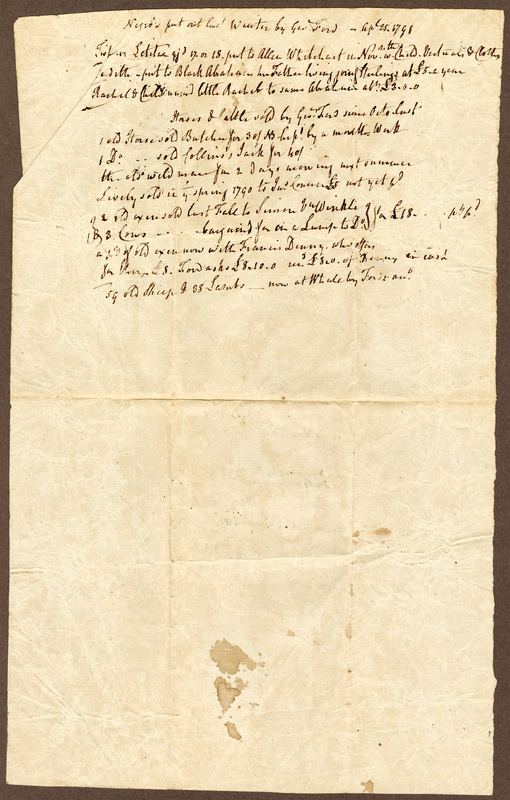 Negro's put out last Winter by Geo: Ford — Ap: 25. 1791
or Letitie ag'd 17. or 18. put to Allen Whitehart in Nov: with Child. Victuals & Cloths
Judith - put to Black Abraham her Father living Sterlings at £5 a year
Rachel & Child named little Rachel to same Abraham at £3-0-0
Horses & Cattle sold by Geo: Ford since Octo: last
1 old Horse sold Butcher for 30/ & kept by a month
1 Do - - sold Collins's Jack for 40/
the old wild mare for 2 days mowing next summer
Lively sold in ye spring 1790 to Jas not yet pd
2 old oxen sold last Fall to Simon Vn Winkle
& 3 Cows - - - bargained for in a Lump to Do for £18 - - pd
a pr of old oxen now with Francis Denny who offers
for £8. Ford asks £8-10-0 of Denny in cash
59 old Sheep & 38 Lambs — now at by Fords